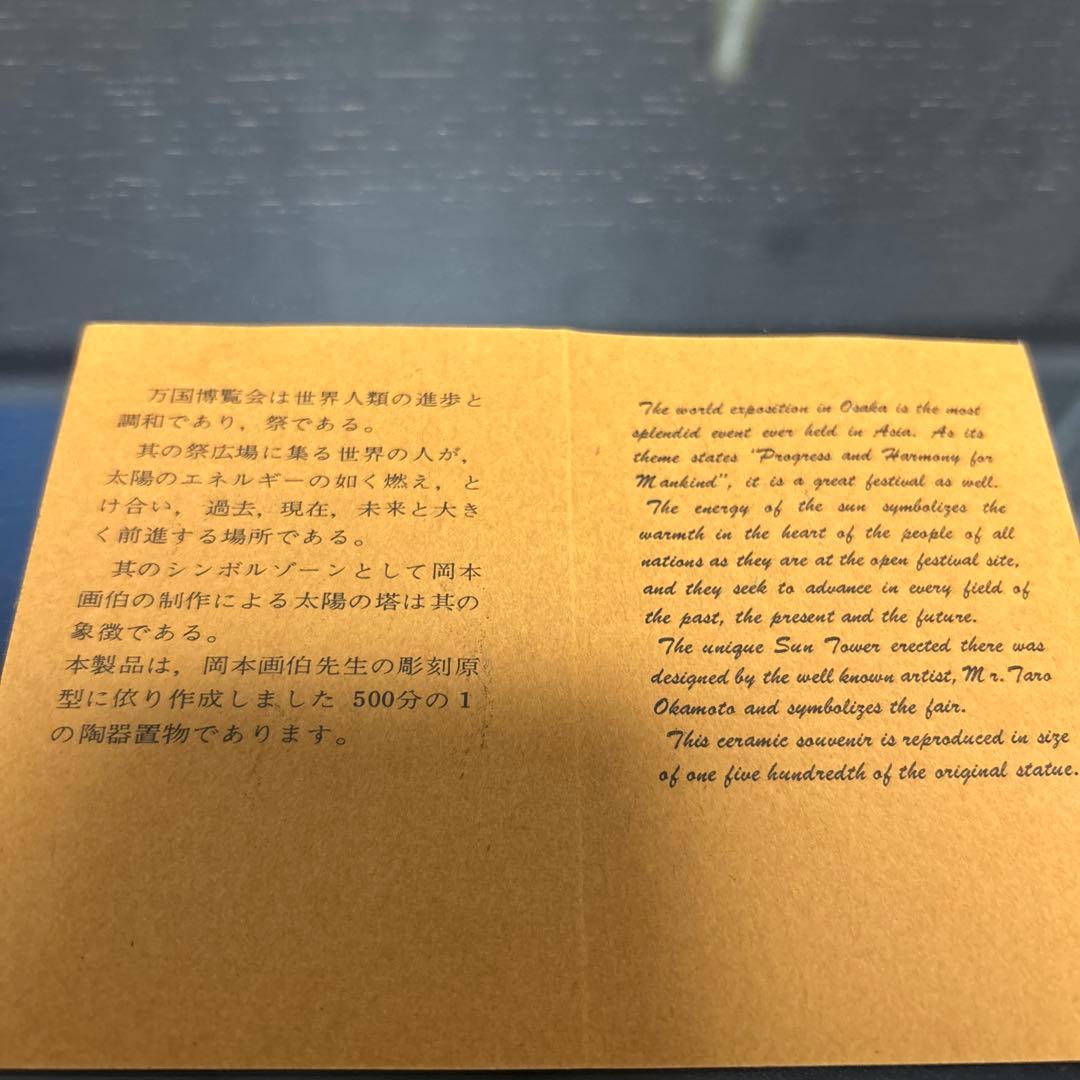 万国博覧会は世界人類の進歩と
調和であり，祭である。
其の祭広場に集る世界の人が，
太陽のエネルギーの如く燃え，と
け合い，過去，現在，未来と大き
く前進する場所である。
其のシンボルゾーンとして岡本
画伯の制作による太陽の塔は其の
象徴である。
本製品は，岡本画伯先生の彫刻原
型に依り作成しました 500分の1
の陶器置物であります。
The world exposition in Osaka is the most
splendid event ever held in Asia. As its
theme states "Progress and Harmony for
Mankind", it is a great festival as well.
The energy of the sun symbolizes the
warmth in the heart of the people of all
nations as they are at the open festival site,
and they seek to advance in every field of
the past, the present and the future.
The unique Sun Tower erected there was
designed by the well known artist, Mr. Taro
Okamoto and symbolizes the fair.
This ceramic souvenir is reproduced in size
of one five hundredth of the original statue.